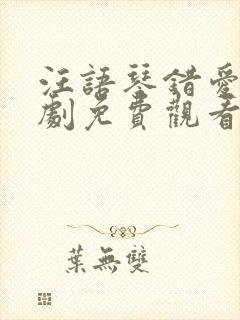 汪語琴錯愛
劇免費觀看
葉無雙